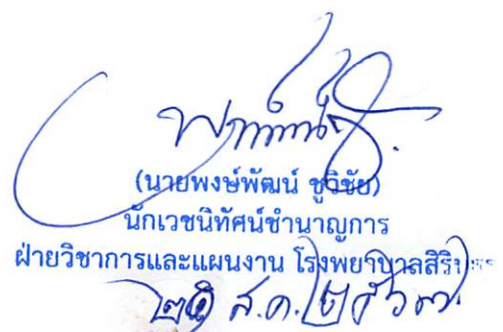 (นายพงษ์พัฒน์ ชูวิชัย)
นักเวชนิทัศน์ชำนาญการ
ฝ่ายวิชาการและแผนงาน โรงพยาบาลสิริ
ส.ค. ๒๕๖๗